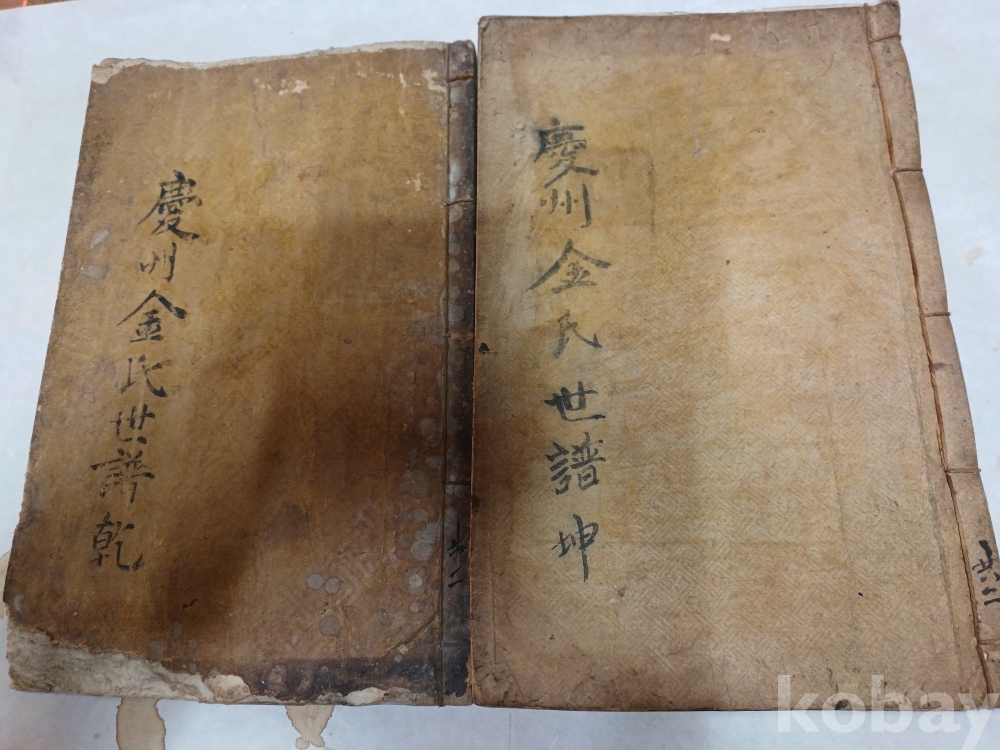 慶州金氏世譜乾
共二
慶州金氏世譜坤
共二
kobay